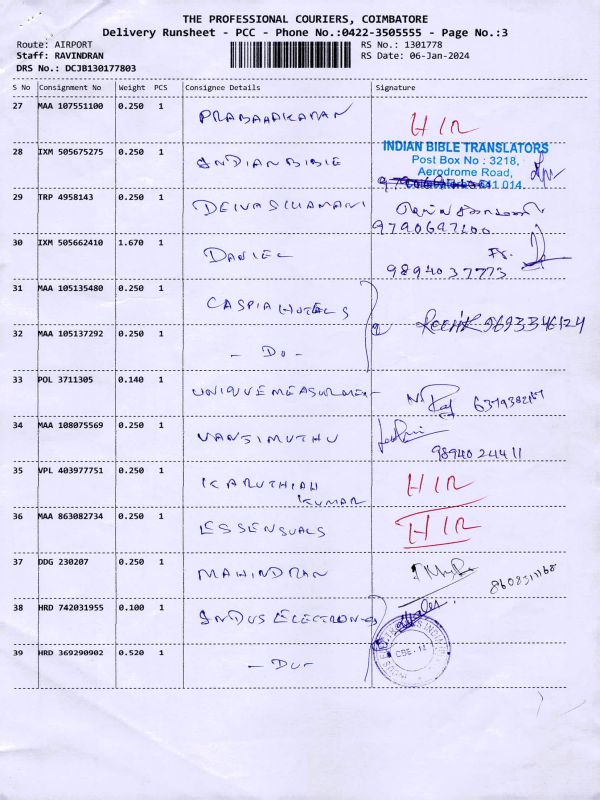 THE PROFESSIONAL COURIERS, COIMBATORE
Delivery Runsheet - PCC - Phone No.:0422-3505555 - Page No.:3
Route: AIRPORT
RS No.: 1301778
Staff: RAVINDRAN
RS Date: 06-Jan-2024
DRS No.: DCJB130177803
S No Consignment No Weight PCS Consignee Details Signature
27 MAA 107551100 0.250 1 PRABAHAKARAN HIR
28 IXM 505675275 0.250 1 INDIAN BIBLE
INDIAN BIBLE TRANSLATORS
Post Box No : 3218,
Aerodrome Road,
641 014.
29 TRP 4958143 0.250 1 DEIVASIHAMANI
9790697100
30 IXM 505662410 1.670 1 DANIEL
9894037773
31 MAA 105135480 0.250 1 CASPIA HOTELS
9693346124
32 MAA 105137292 0.250 1 - Do -
33 POL 3711305 0.140 1 UNIQUE MEASUREMENT
34 MAA 108075569 0.250 1 VANJIMUTHU
9894024411
35 VPL 403977751 0.250 1 KARUTHIAH HIR
KUMAR
36 MAA 863082734 0.250 1 ESSENSUALS HIR
37 DDG 230207 0.250 1 MAHINDRAN
38 HRD 742031955 0.100 1 INDUS ELECTRONIC
39 HRD 369290902 0.520 1 - Do -
CBE - 14